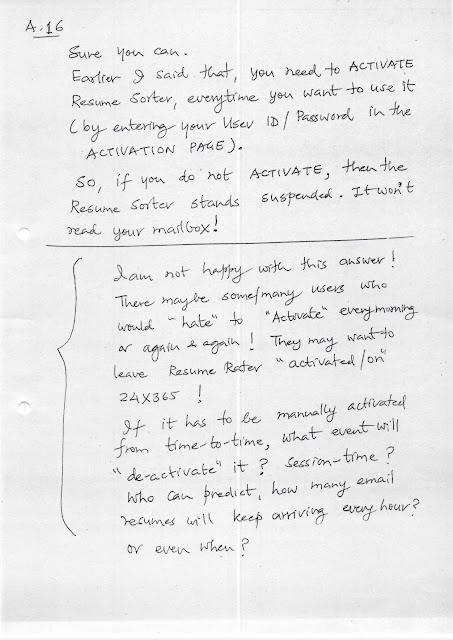 A.16
Sure you can.
Earlier I said that, you need to ACTIVATE
Resume Sorter, everytime you want to use it
(by entering your User ID/Password in the
ACTIVATION PAGE).
So, if you do not ACTIVATE, then the
Resume Sorter stands suspended. It won't
read your mailbox!
I am not happy with this answer!
There maybe some/many users who
would "hate" to "Activate" every morning
or again & again! They may want to
leave Resume Rater "activated/on"
24X365 !
If it has to be manually activated
from time-to-time, what event will
"de-activate" it? session-time?
Who can predict, how many email
resumes will keep arriving every hour?
or even when?